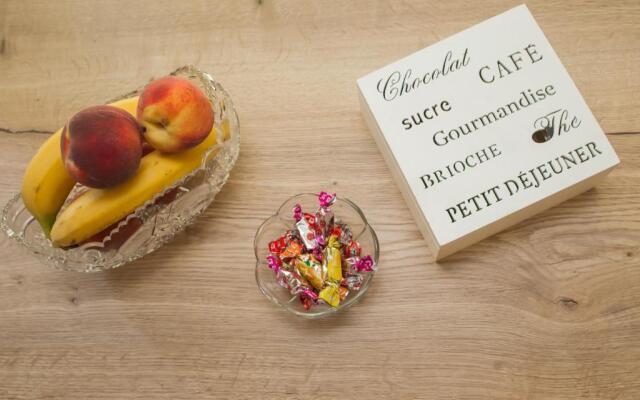 Chocolat
CAFÉ
sucre
Gourmandise
Thé
BRIOCHE
PETIT DÉJEUNER